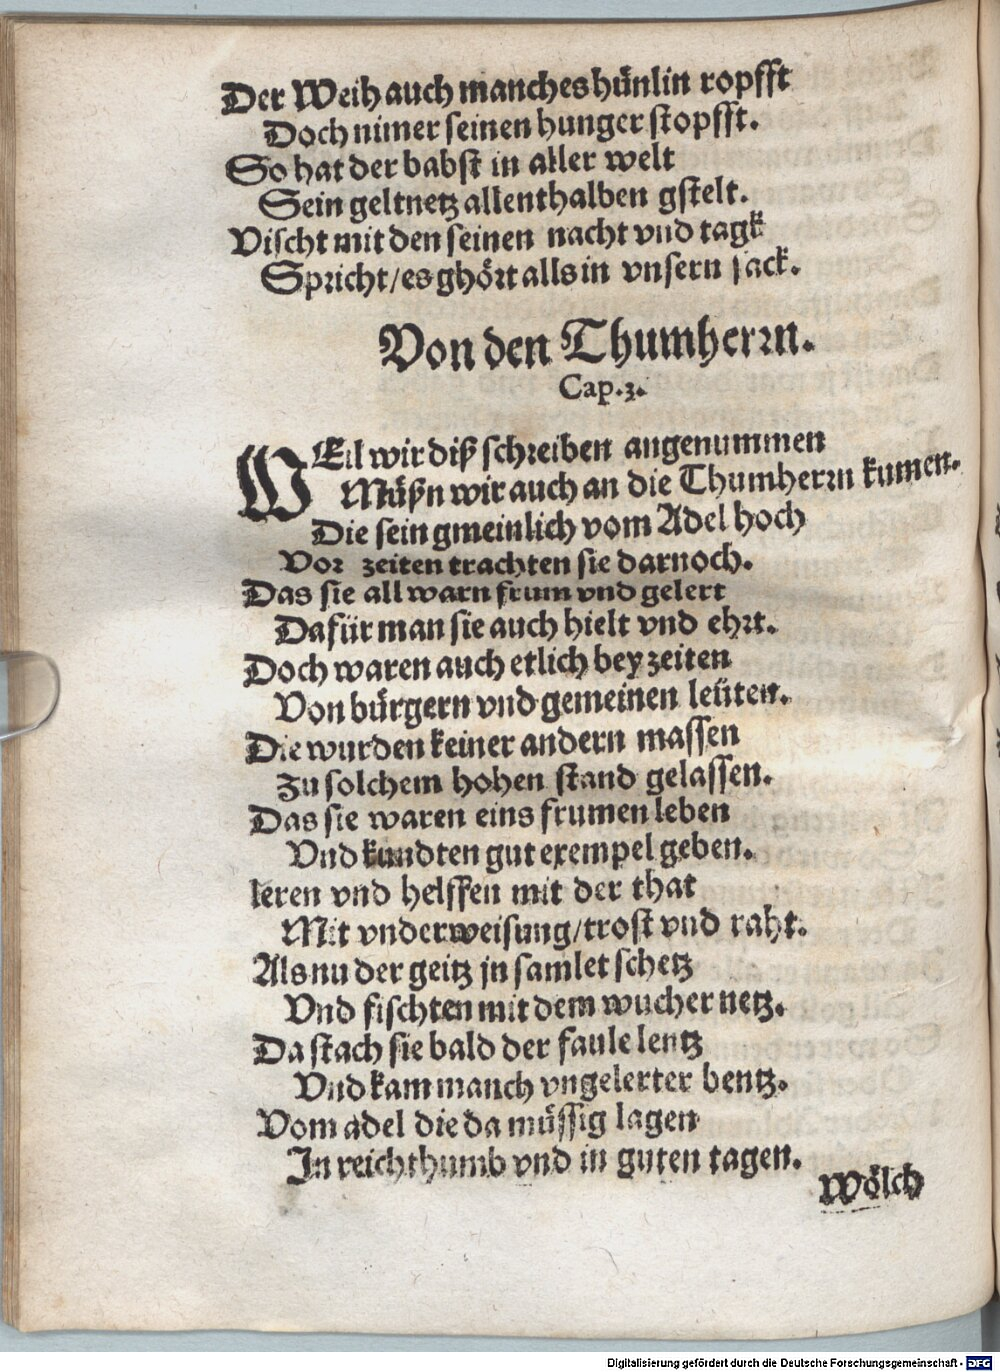 Der Weih auch manches hünlin ropfft
Doch nimer seinen hunger stopfft.
So hat der babst in aller welt
Sein geltnetz allenthalben gstelt.
Vischt mit den seinen nacht vnd tagk
Spricht/es ghört alls in vnsern jack.
Von den Thumherrn.
Cap.3.
WEil wir diß schreiben angenummen
Müßn wir auch an die Thumherrn kumen.
Die sein gmeinlich vom Adel hoch
Vor zeiten trachten sie darnoch.
Das sie all warn frum vnd gelert
Dafür man sie auch hielt vnd ehrt.
Doch waren auch etlich bey zeiten
Von bürgern vnd gemeinen leüten.
Die wurden keiner andern massen
Zu solchem hohen stand gelassen.
Das sie waren eins frumen leben
Vnd kundten gut exempel geben.
leren vnd helffen mit der that
Mit vnderweisung/trost vnd raht.
Als nu der geitz jn samlet schetz
Vnd fischten mit dem wucher netz.
Da stach sie bald der faule lentz
Vnd kam manch vngelerter bentz.
Vom adel die da müssig lagen
In reichthumb vnd in guten tagen.
Wölch
Digitalisierung gefördert durch die Deutsche Forschungsgemeinschaft - DFG